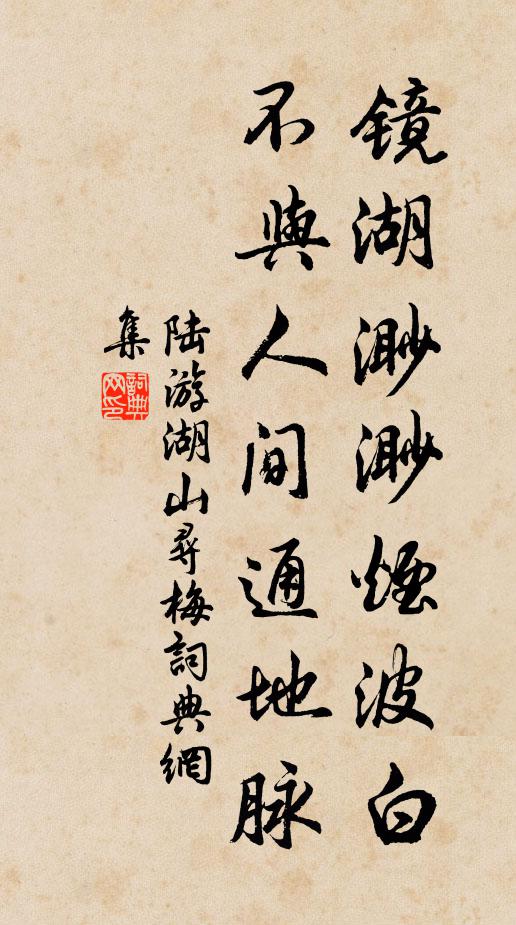 鏡湖渺渺煙波白
不與人間通地脉
陆游湖山尋梅詞典網
集
詞典网印